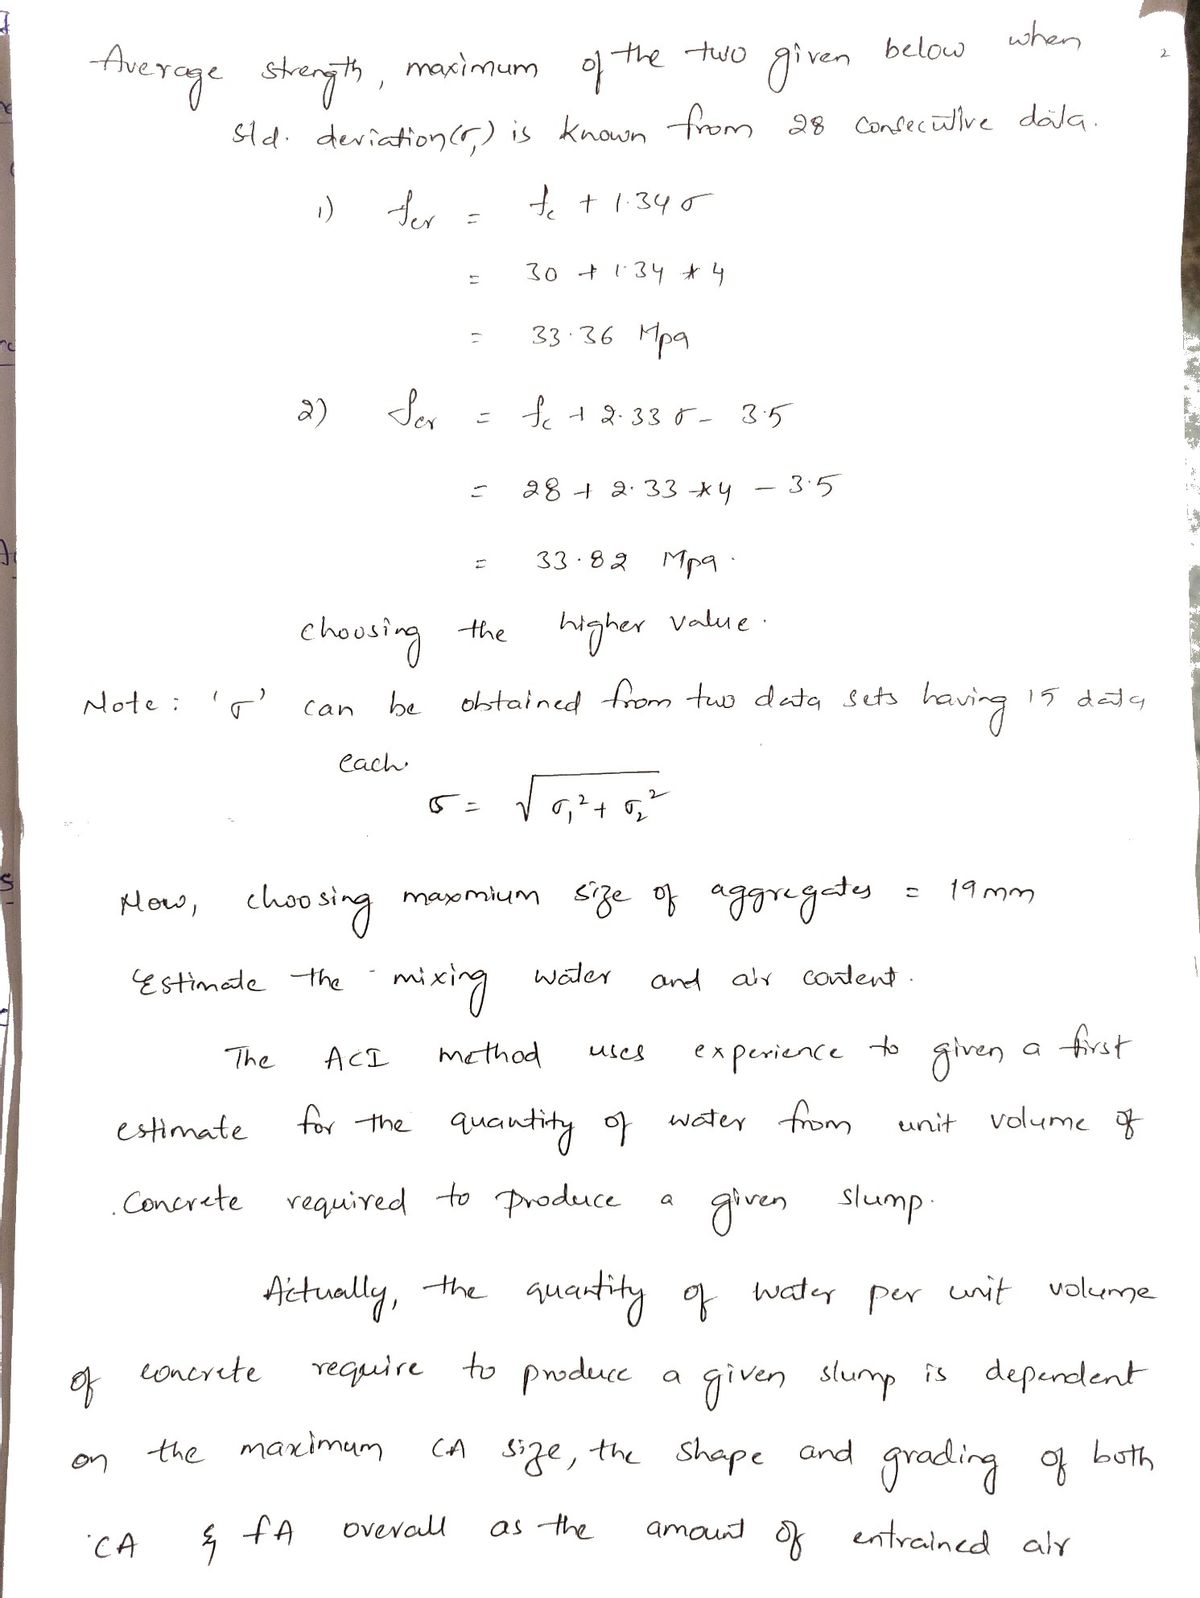 Average strength, maximum of the two given below when
2
std. deviation(σ,) is known from 28 consecutive data.
1) fcr = fc + 1.34 σ
= 30 + 1.34 * 4
= 33.36 Mpa
2) fcr = fc + 2.33 σ - 3.5
= 28 + 2.33 * 4 - 3.5
= 33.82 Mpa.
choosing the higher value.
Note: 'σ' can be obtained from two data sets having 15 data
each.
σ = √σ₁² + σ₂²
Now, choosing maxmium size of aggregates = 19 mm
Estimate the mixing water and air content.
The ACI method uses experience to given a first
estimate for the quantity of water from unit volume of
Concrete required to produce a given slump.
Actually, the quantity of water per unit volume
of concrete require to produce a given slump is dependent
on the maximum CA size, the shape and grading of both
CA & fA overall as the amount of entrained air